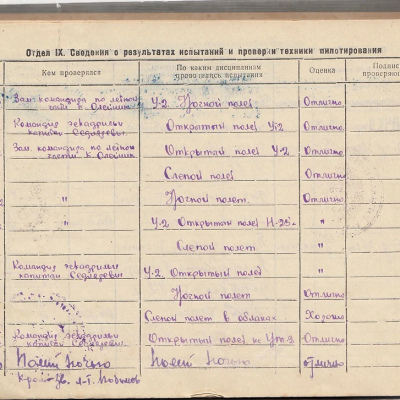 Отдел IX. Сведения о результатах испытаний и проверки техники пилотирования
Кем проверялся
По каким дисциплинам проводились испытания
Оценка
Подпись
Зам. командира по летной части к. Олейник
У-2 Ночной полет
Отлично
Командир эскадрильи капитан
Открытый полет У-2
Отлично
Зам. командира по летной части к. Олейник
Открытый полет У-2
Отлично
Слепой полет
Отлично
"
Ночной полет
Отлично
"
У-2 Открытый полет
"
Слепой полет
"
Командир эскадрильи капитан
У-2 Открытый полет
"
Ночной полет
Отлично
Слепой полет в облаках
Хорошо
Командир эскадрильи капитан
Открытый полет
Отлично
Полет ночью
Полет ночью
отлично